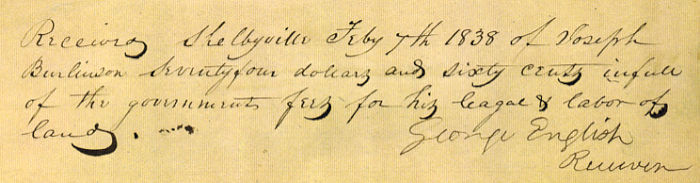 Received Shelbyville Feby 7th 1838 of Joseph
Burlinson Seventyfour dollars and sixty cents infull
of the government fees for his league & labor of
land.
George English
Receiver